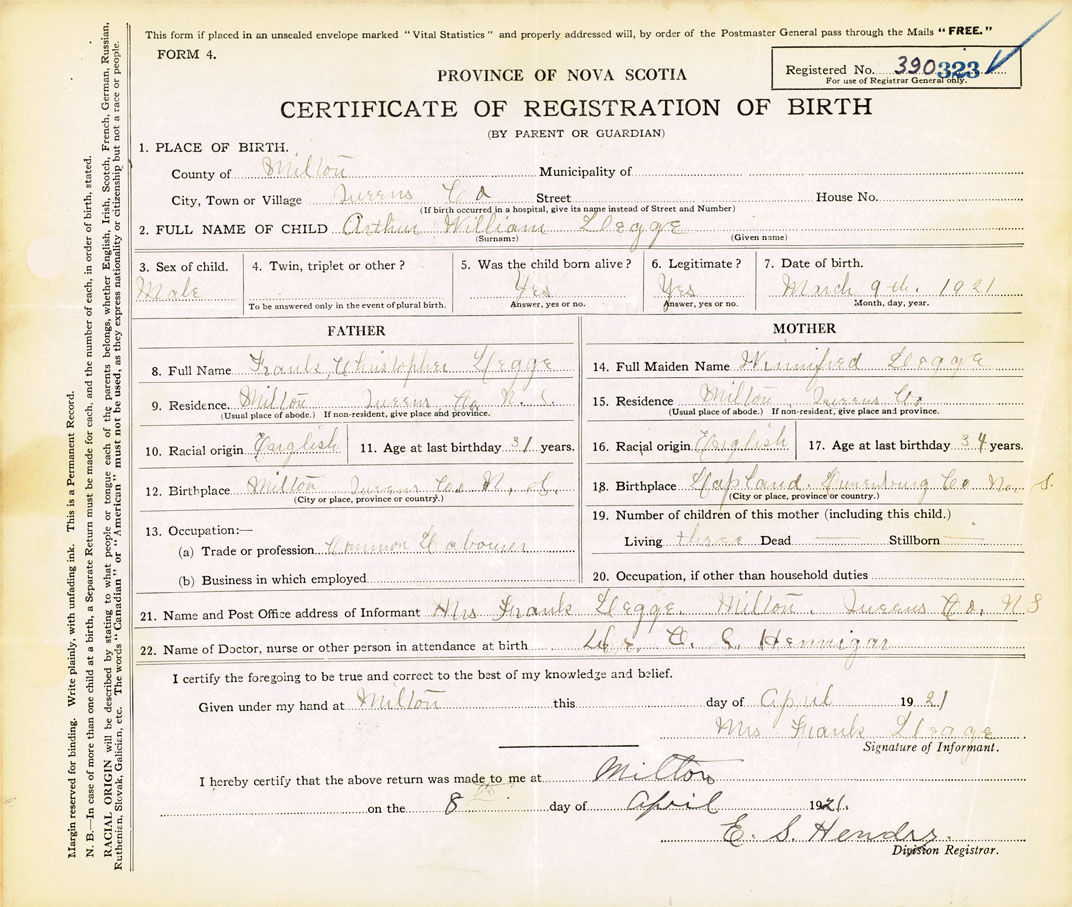 This form if placed in an unsealed envelope marked "Vital Statistics" and properly addressed will, by order of the Postmaster General pass through the Mails "FREE."
FORM 4.
Registered No. 390 323
For use of Registrar General only.
PROVINCE OF NOVA SCOTIA
CERTIFICATE OF REGISTRATION OF BIRTH
(BY PARENT OR GUARDIAN)
1. PLACE OF BIRTH.
County of Milton Municipality of
City, Town or Village Queens Co Street House No.
(If birth occurred in a hospital, give its name instead of Street and Number)
2. FULL NAME OF CHILD Arthur William Legge
(Surname) (Given name)
3. Sex of child. 4. Twin, triplet or other? 5. Was the child born alive? 6. Legitimate? 7. Date of birth.
Male Yes Yes March 9th. 1921
To be answered only in the event of plural birth. Answer, yes or no. Answer, yes or no. Month, day, year.
FATHER
8. Full Name Frank Christopher Legge
9. Residence Milton Queens Co. N. S.
(Usual place of abode.) If non-resident, give place and province.
10. Racial origin English 11. Age at last birthday 31 years.
12. Birthplace Milton Queens Co. N. S.
(City or place, province or country.)
13. Occupation:—
(a) Trade or profession Common Labourer
(b) Business in which employed
MOTHER
14. Full Maiden Name Winnifred Legge
15. Residence Milton Queens Co
(Usual place of abode.) If non-resident, give place and province.
16. Racial origin English 17. Age at last birthday 34 years.
18. Birthplace Lapland. Lunenburg Co No. S.
(City or place, province or country.)
19. Number of children of this mother (including this child.)
Living three Dead — Stillborn —
20. Occupation, if other than household duties
21. Name and Post Office address of Informant Mrs Frank Legge. Milton. Queens Co. N S
22. Name of Doctor, nurse or other person in attendance at birth Hennigar
I certify the foregoing to be true and correct to the best of my knowledge and belief.
Given under my hand at Milton this day of April 1921
Mrs Frank Legge
Signature of Informant.
I hereby certify that the above return was made to me at Milton
on the 8th day of April 1921.
E. S. Hendry.
Division Registrar.
Margin reserved for binding. Write plainly, with unfading ink. This is a Permanent Record.
N. B.—In case of more than one child at a birth, a Separate Return must be made for each, and the number of each, in order of birth, stated.
RACIAL ORIGIN will be described by stating to what people or tongue each of the parents belongs, whether English, Irish, Scotch, French, German, Russian,
Ruthenian, Slovak, Galician, etc. The words "Canadian" or "American" must not be used, as they express nationality or citizenship but not a race or people.